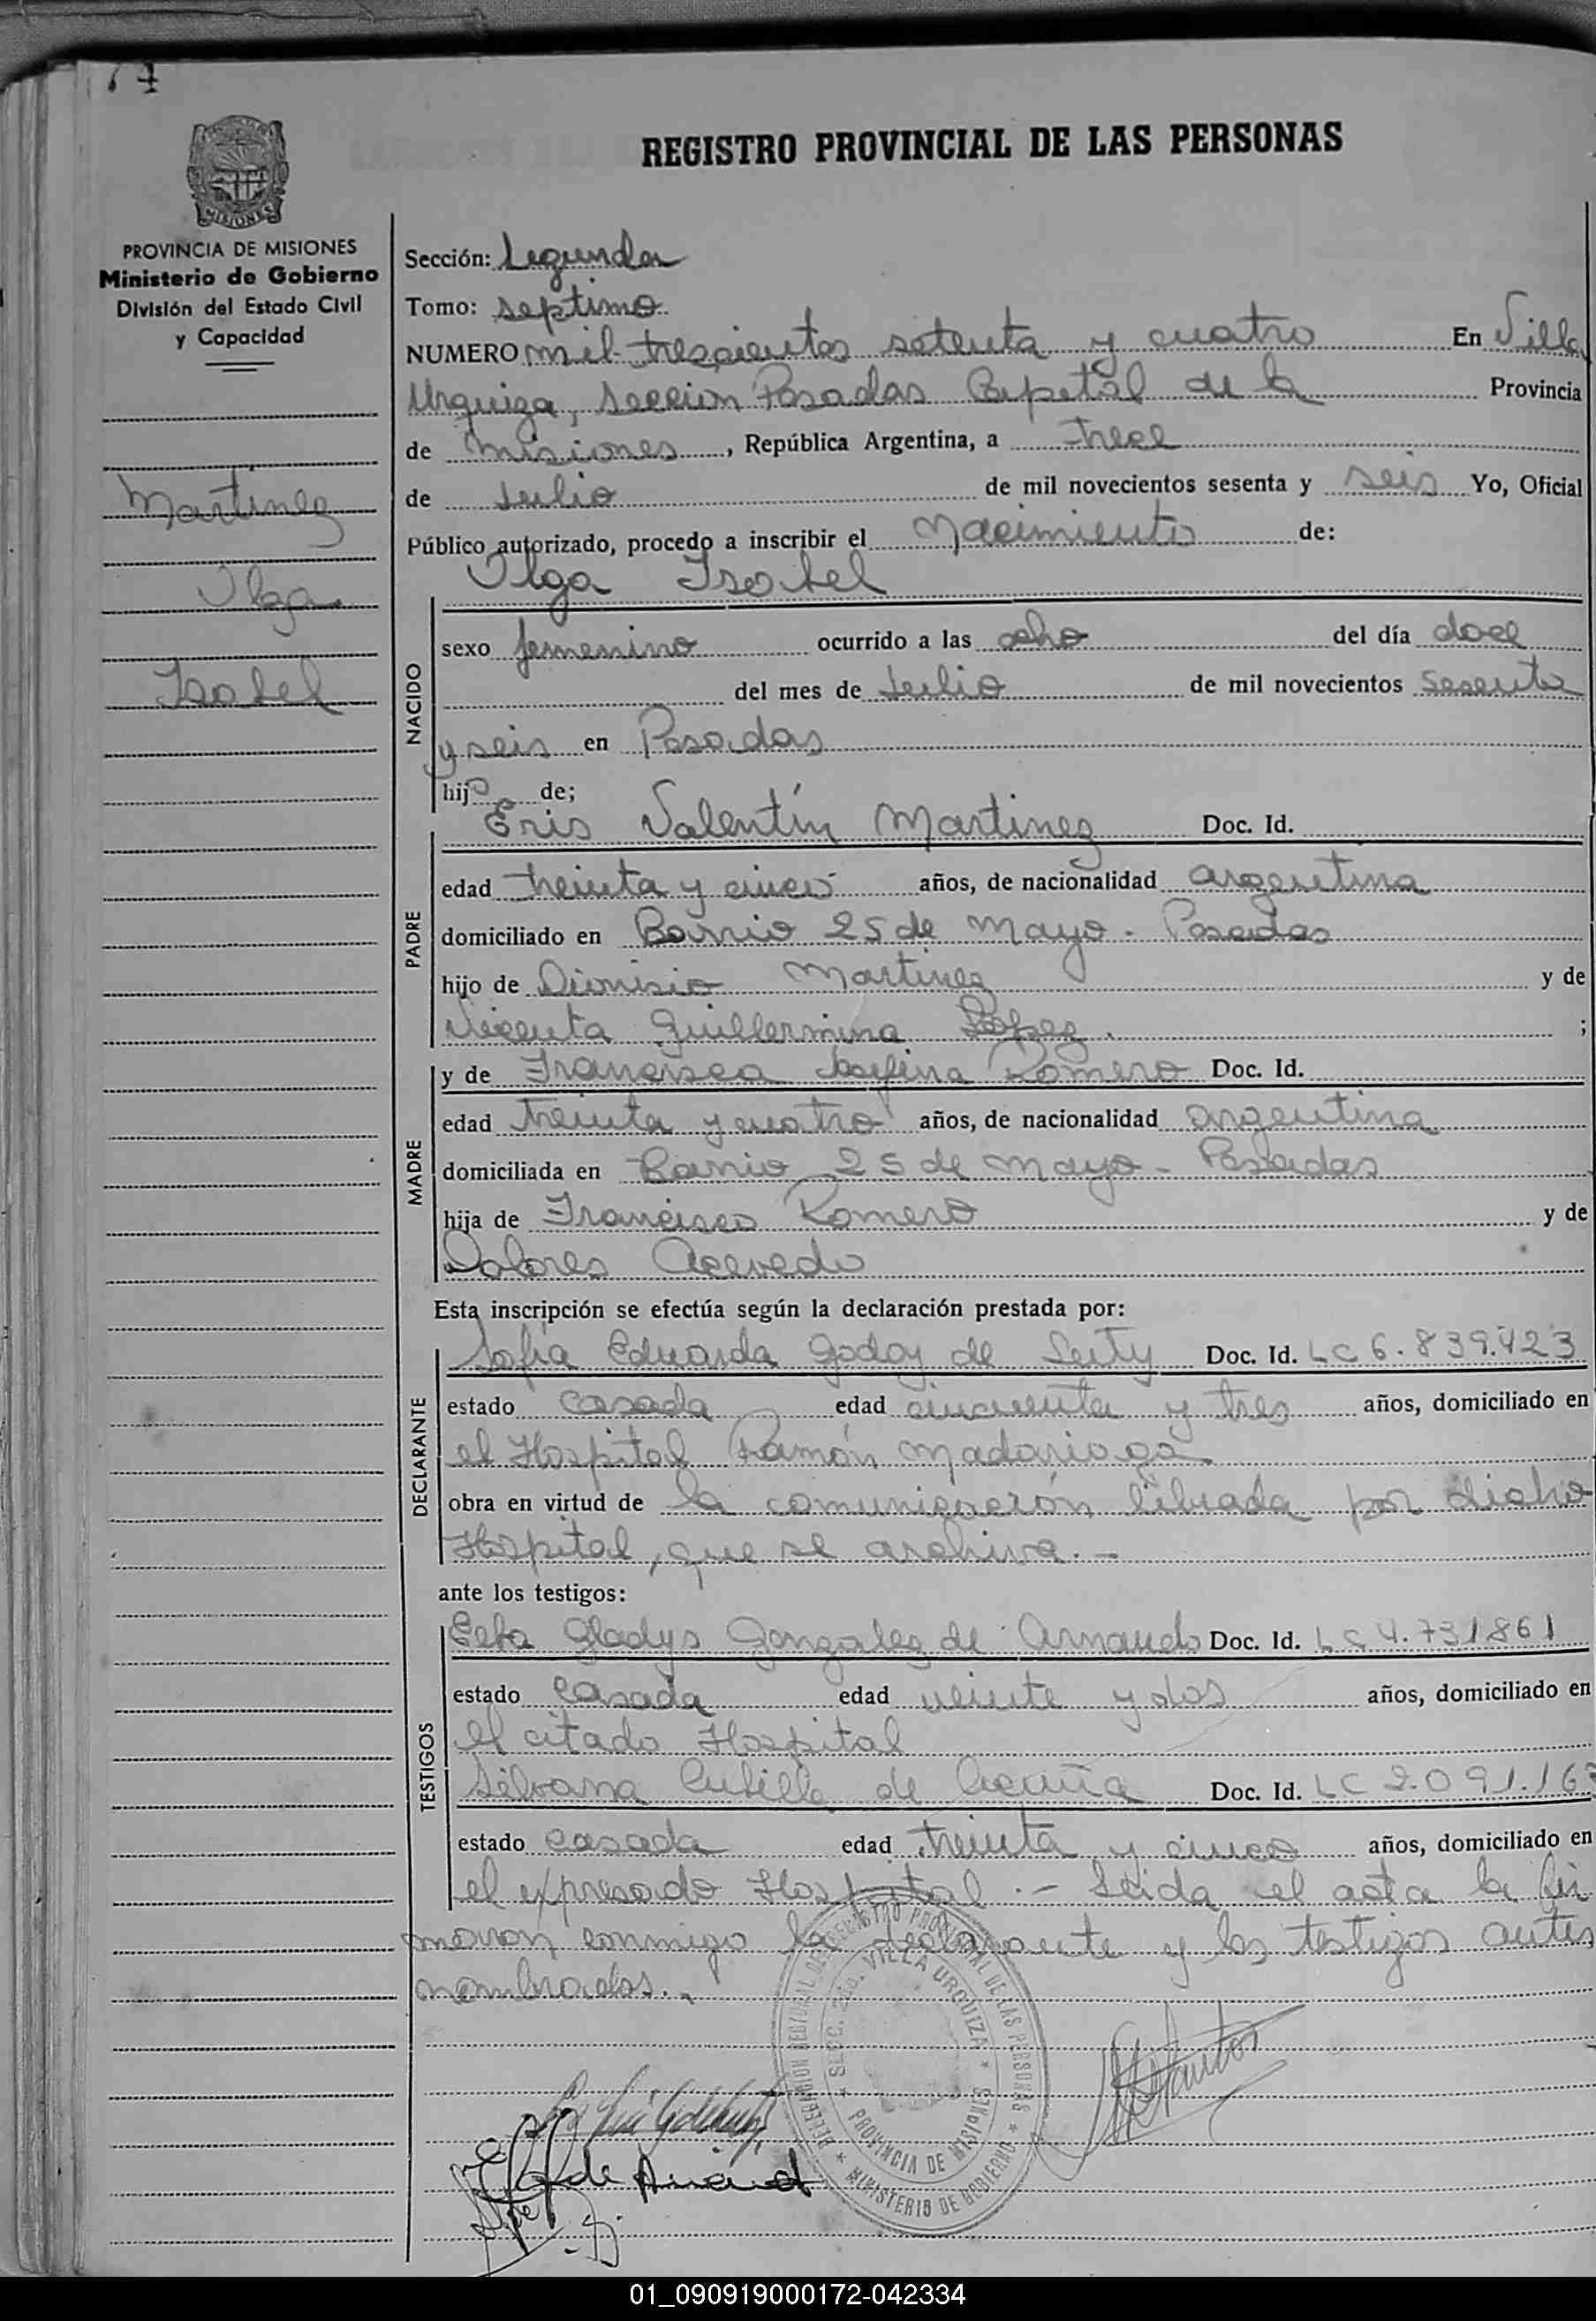 REGISTRO PROVINCIAL DE LAS PERSONAS
MISIONES
PROVINCIA DE MISIONES
Ministerio de Gobierno
División del Estado Civil
y Capacidad
Martinez
Olga
Isabel
Sección: Segunda
Tomo: septimo
NUMERO mil trescientos setenta y cuatro En Villa
Urquiza, Seccion Posadas Capital de la Provincia
de Misiones, República Argentina, a trece
de Julio de mil novecientos sesenta y seis Yo, Oficial
Público autorizado, procedo a inscribir el Nacimiento de:
Olga Isabel
NACIDO
sexo femenino ocurrido a las ocho del día doce
del mes de Julio de mil novecientos sesenta
y seis en Posadas
hijo de;
Eris Valentín Martinez Doc. Id.
PADRE
edad treinta y cinco años, de nacionalidad argentina
domiciliado en Barrio 25 de Mayo - Posadas
hijo de Dionisio Martinez y de
Vicenta Guillermina Lopez. ;
y de Francisca Josefina Romero Doc. Id.
MADRE
edad treinta y cuatro años, de nacionalidad argentina
domiciliada en Barrio 25 de Mayo - Posadas
hija de Francisco Romero y de
Dolores Acevedo
Esta inscripción se efectúa según la declaración prestada por:
Sofia Eduarda Godoy de Doc. Id. LC 6.839.423
DECLARANTE
estado casada edad cincuenta y tres años, domiciliado en
el Hospital Ramón Madariaga
obra en virtud de la comunicación librada por dicho
Hospital, que se archiva.-
ante los testigos:
Gladys Gonzalez de Doc. Id. LC 4.731861
TESTIGOS
estado casada edad veinte y dos años, domiciliado en
el citado Hospital
Silvana de Acuña Doc. Id. LC 2.091.163
estado casada edad treinta y cinco años, domiciliado en
el expresado Hospital.- Leida el acta la fir
maron conmigo la declarante y los testigos antes
nombrados.
REGISTRO PROVINCIAL DE LAS PERSONAS * MINISTERIO DE GOBIERNO *
SECC. 2da. VILLA URQUIZA * PROVINCIA DE MISIONES *
01_090919000172-042334